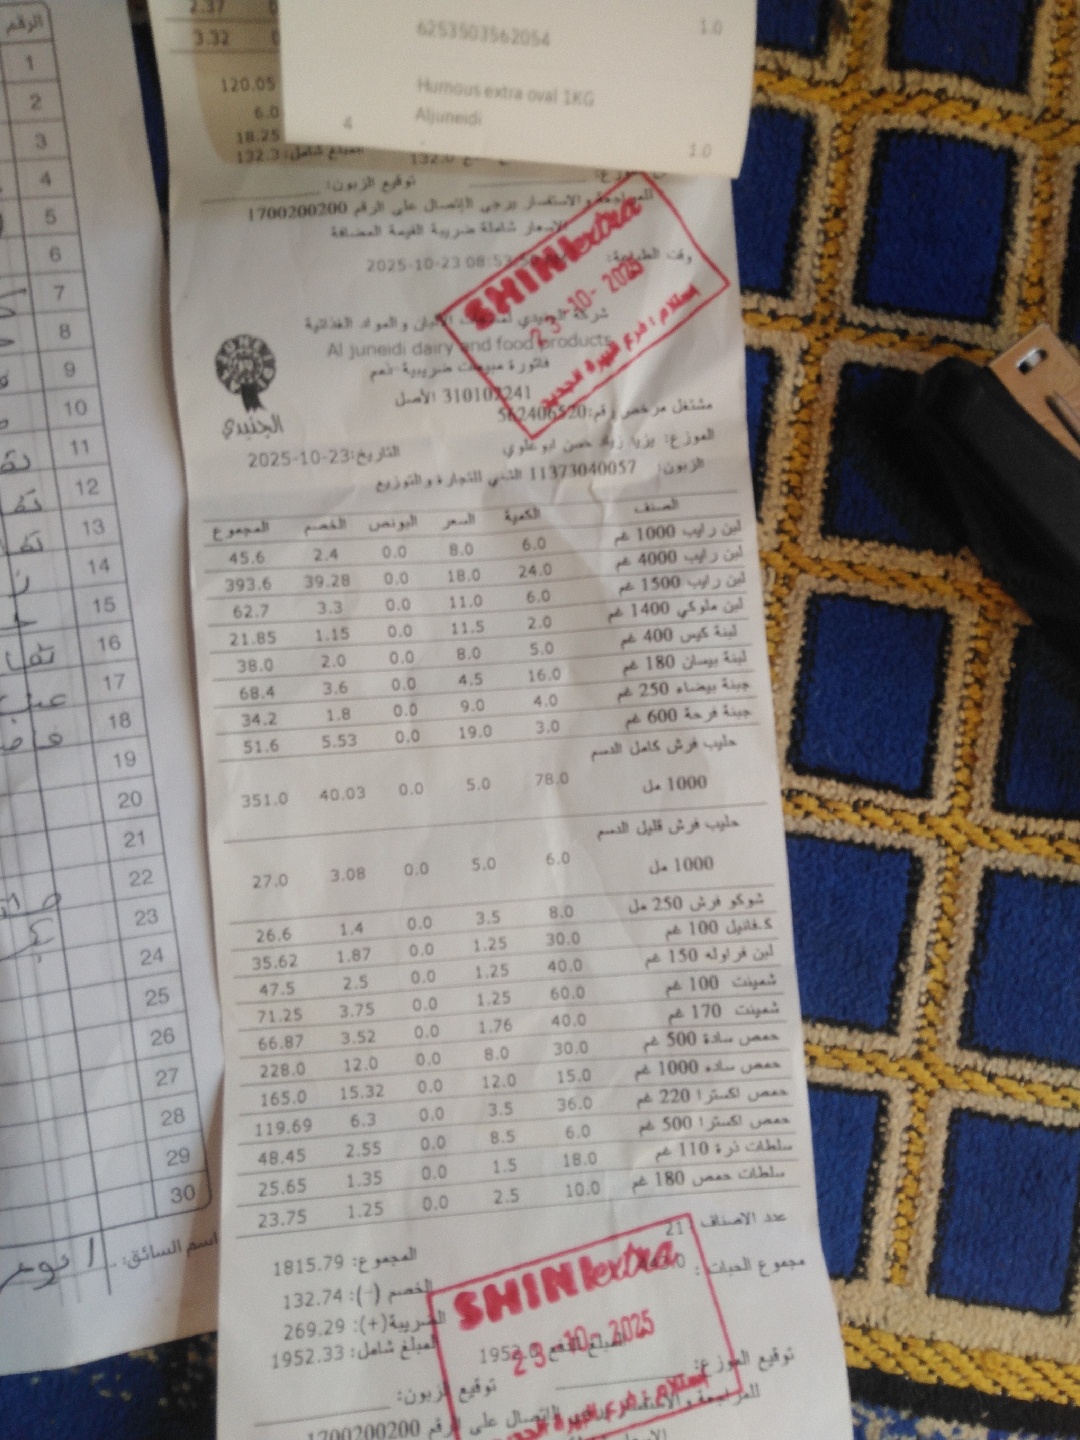 2.37
3.32
120.05
6.0
18.25
132.3 المبلغ شامل:
132.0
6253503562054
1.0
Humous extra oval 1KG
Aljuneidi
4
1.0
توقيع الزبون:
للمراجعة والاستفسار يرجى الإتصال على الرقم 1700200200
الاسعار شاملة ضريبة القيمة المضافة
وقت الطباعة: 2025-10-23 08:53
SHINI extra
23-10-2025
شركة الجنيدي لمنتجات الألبان والمواد الغذائية
Al juneidi dairy and food products
فاتورة مبيعات ضريبية-نعم
310102241 الأصل
مشتغل مرخص رقم:562406520
الجنيدي
التاريخ:2025-10-23
الزبون: 11373040057
للتجارة والتوزيع
الصنف الكمية السعر الخصم المجموع
لبن رايب 1000 غم 6.0 8.0 0.0 2.4 45.6
لبن رايب 4000 غم 24.0 18.0 0.0 39.28 393.6
لبن رايب 1500 غم 6.0 11.0 0.0 3.3 62.7
لبن ملوكي 1400 غم 2.0 11.5 0.0 1.15 21.85
لبنة كيس 400 غم 5.0 8.0 0.0 2.0 38.0
لبنة بيسان 180 غم 16.0 4.5 0.0 3.6 68.4
جبنة بيضاء 250 غم 4.0 9.0 0.0 1.8 34.2
جبنة فرحة 600 غم 3.0 19.0 0.0 5.53 51.6
حليب فرش كامل الدسم
1000 مل 78.0 5.0 0.0 40.03 351.0
حليب فرش قليل الدسم
1000 مل 6.0 5.0 0.0 3.08 27.0
شوكو فرش 250 مل 8.0 3.5 0.0 1.4 26.6
ك.فانيل 100 غم 30.0 1.25 0.0 1.87 35.62
لبن فراوله 150 غم 40.0 1.25 0.0 2.5 47.5
شمينت 100 غم 60.0 1.25 0.0 3.75 71.25
شمينت 170 غم 40.0 1.76 0.0 3.52 66.87
حمص سادة 500 غم 30.0 8.0 0.0 12.0 228.0
حمص ساده 1000 غم 15.0 12.0 0.0 15.32 165.0
حمص اكسترا 220 غم 36.0 3.5 0.0 6.3 119.69
حمص اكسترا 500 غم 6.0 8.5 0.0 2.55 48.45
سلطات ذرة 110 غم 18.0 1.5 0.0 1.35 25.65
سلطات حمص 180 غم 10.0 2.5 0.0 1.25 23.75
عدد الاصناف : 21
مجموع الحبات :
المجموع: 1815.79
الخصم (-): 132.74
الضريبة(+): 269.29
المبلغ شامل: 1952.33
SHINI extra
23-10-2025
توقيع الموزع:
توقيع الزبون:
للمراجعة والاستفسار يرجى الإتصال على الرقم 1700200200
الرقم
1
2
3
4
5
6
7
8
9
10
11
12
13
14
15
16
17
18
19
20
21
22
23
24
25
26
27
28
29
30
اسم السائق: